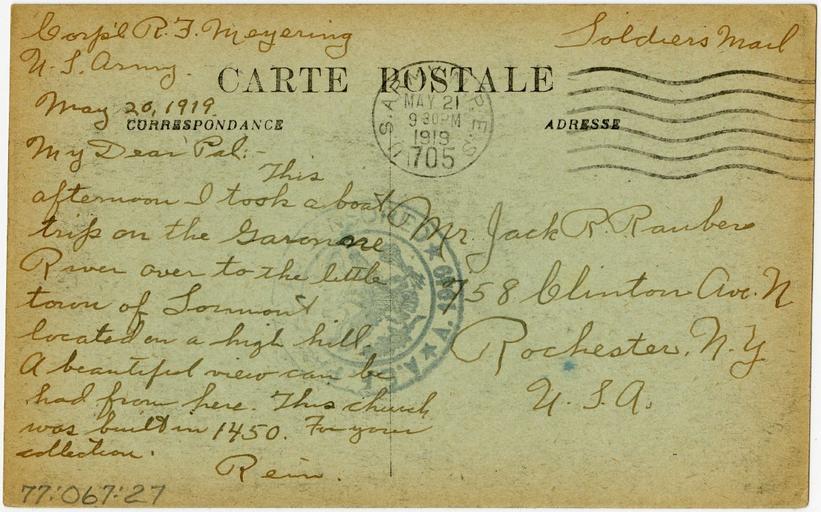 Corp'l R. F. Meyering
Soldiers Mail
U. S. Army.
CARTE POSTALE
May 20, 1919
CORRESPONDANCE
ADRESSE
U.S. ARMY P.E.S.
MAY 21
9 30 PM
1919
705
My Dear Pal:-
This
afternoon I took a boat
trip on the Garonne
River over to the little
town of Lormont
located on a high hill.
A beautiful view can be
had from here. This church
was built in 1450. For your
collection.
Rein.
Mr. Jack R. Raubers
758 Clinton Ave. N
Rochester, N. Y
U. S. A.
A.E.F.
77:067:27